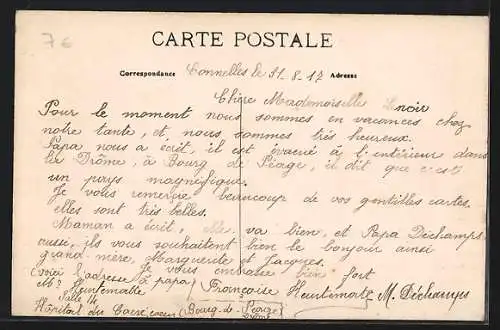 76
CARTE POSTALE
Correspondance Connelles le 31-8-17 Adresse
Chère Mademoiselle Lenoir
Pour le moment nous sommes en vacances chez
notre tante, et nous sommes très heureux.
Papa nous a écrit, il est évacué à l'intérieur dans
la Drôme, à Bourg de Péage, il dit que c'est
un pays magnifique.
Je vous remercie beaucoup de vos gentilles cartes
elles sont très belles.
Maman a écrit, elle va bien, et Papa Déchamps
aussi, ils vous souhaitent bien le bonjour ainsi
grand-mère, Marguerite et Jacques.
Je vous embrasse bien fort
(voici l'adresse à papa) Françoise Heurtematte M. Déchamps
Mr Heurtematte
Salle 14
Hôpital du Sacré coeur (Bourg-de-Péage